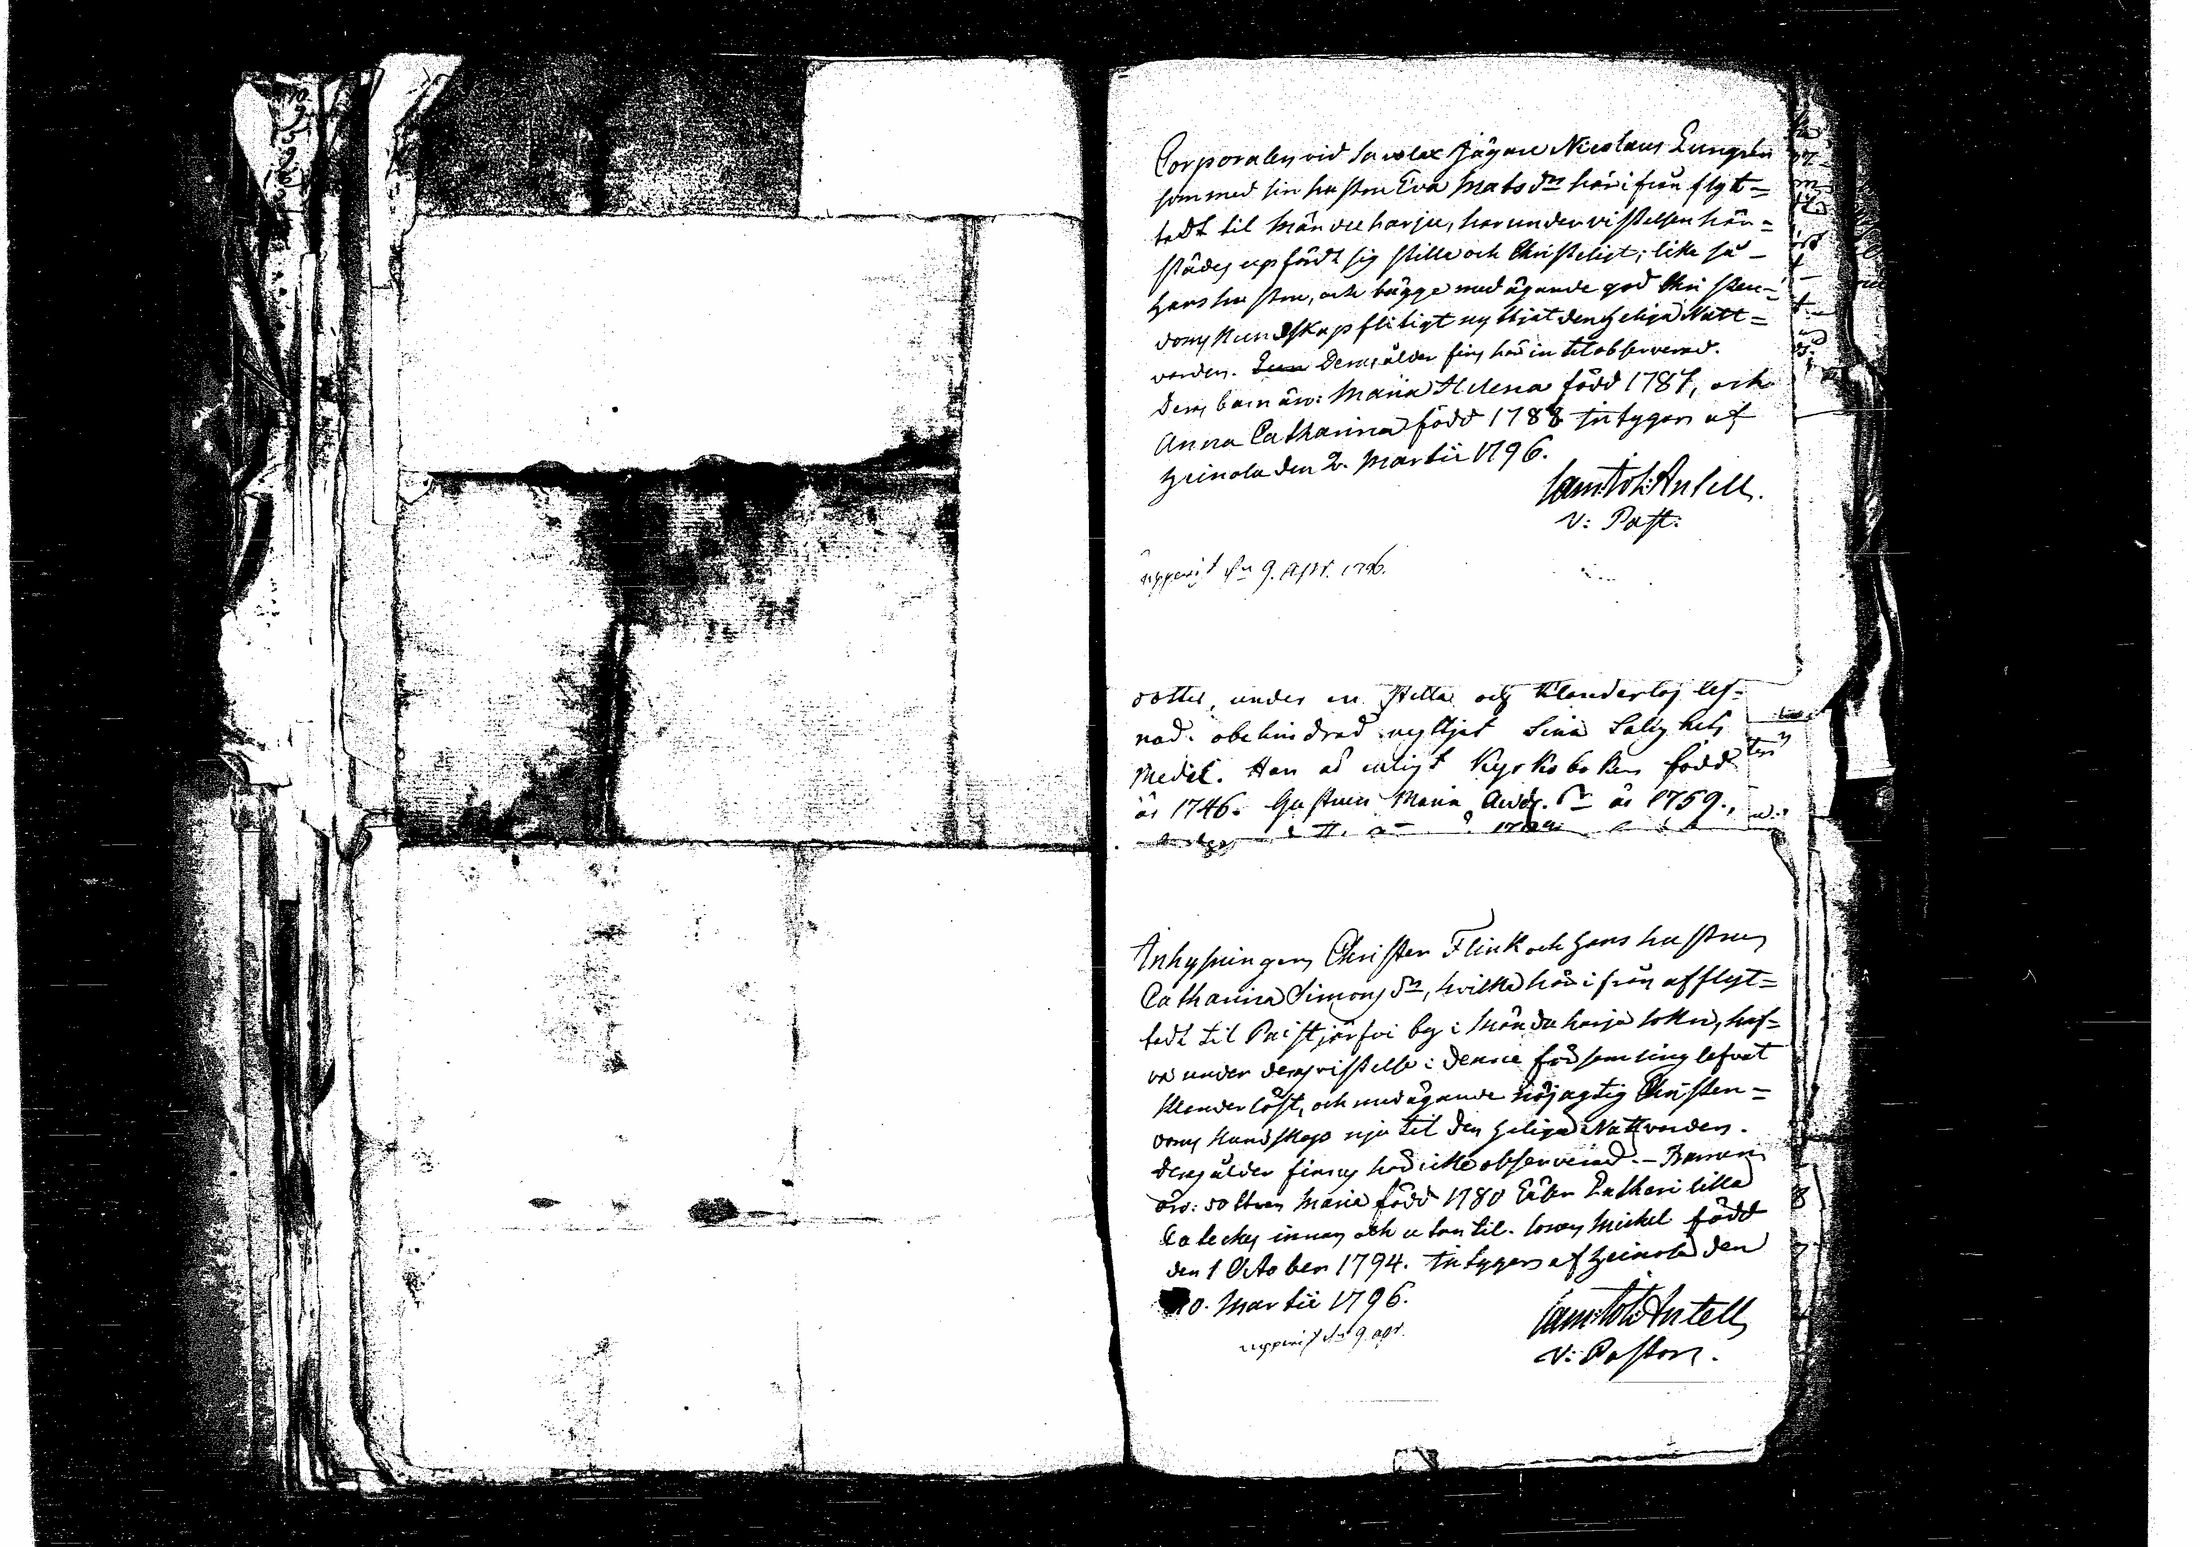 Corporalen vid Savolax Jägare Nicolaus Liungren
som med sin hustru Eva Mats dr härifrån flyt=
tadt til Mändueharju, har under vistelsen här=
städes upfördt sig stilla och Christeligt; lika så
hans hustru, och bägge med ägande god Christen=
doms Kundskap flitigt nyttjat den Heliga Natt=
varden. Deras ålder fins här intet observerad.
Deras barn äro: Maria Helena född 1787, och
Anna Catharina född 1788 Intygar af
Heinola den 2. Martii 1796.
Sam: Joh: Antell.
V: Past:
uppvist d. 9. Apr. 1796.
dotter, under en stilla och klanderlös lef-
nad obehindrad nyttjat sina Salighets
Medel. Han är enligt Kyrkoboken född
år 1746. Hustrun Maria And. dr år 1759.,
Inhysningen Christer Flink och hans hustru
Catharina Simons dr, hvilka härifrån afflyt=
tadt til Paistjärfvi by i Mänduharju Sokn, haf=
va under deras vistelse i denne församling lefvat
klanderlöst, och med ägande nöjagtig Christen=
doms Kundskap nju til den Heliga Nattvarden.
Deras ålder finnes här icke observerad. - Barnen
äro: dottren Maria född 1780 läser Lutheri lilla
Cateches innan och utan til. Sonen Michel född
den 1 October 1794. Intygar af Heinola den
10. Martii 1796.
Sam: Joh: Antell
V: Pastor.
uppvist d. 9 apr.